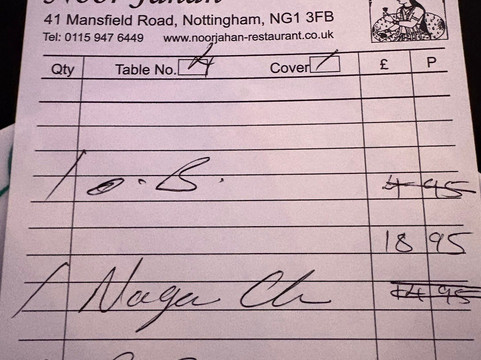 Noor Jahan
41 Mansfield Road, Nottingham, NG1 3FB
Tel: 0115 947 6449 www.noorjahan-restaurant.co.uk
Qty Table No. 4 Cover / £ P
1 O.B. 4 95
18 95
1 Naga Ch 14 95